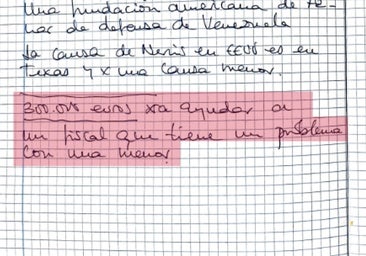 Una fundación americana de te-
mas de defensa de Venezuela
La causa de Nervis en EEUU es en
Texas y x una causa menor.
300.000 euros xra ayudar a
un fiscal que tiene un problema
con una menor